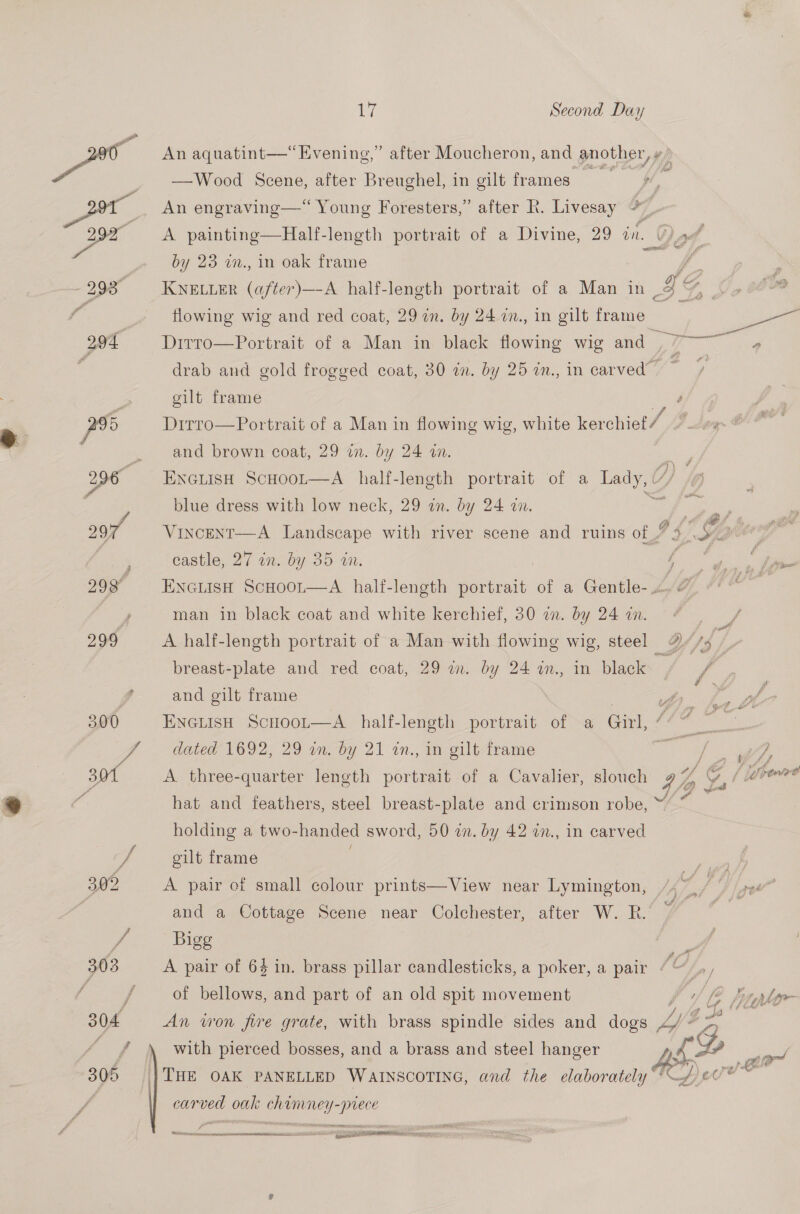 17 Second Day
290 An aquatint—“Evening,” after Moucheron, and another,
—Wood Scene, after Breughel, in gilt frames
291 An engraving—“Young Foresters,” after R. Livesay
292 A painting—Half-length portrait of a Divine, 29 in.
by 23 in., in oak frame
293 KNELLER (after)—A half-length portrait of a Man in
flowing wig and red coat, 29 in. by 24 in., in gilt frame
294 DITTO—Portrait of a Man in black flowing wig and
drab and gold frogged coat, 30 in. by 25 in., in carved
gilt frame
295 DITTO—Portrait of a Man in flowing wig, white kerchief
and brown coat, 29 in. by 24 in.
296 ENGLISH SCHOOL—A half-length portrait of a Lady,
blue dress with low neck, 29 in. by 24 in.
297 VINCENT—A Landscape with river scene and ruins of
castle, 27 in. by 35 in.
298 ENGLISH SCHOOL—A half-length portrait of a Gentle-
man in black coat and white kerchief, 30 in. by 24 in.
299 A half-length portrait of a Man with flowing wig, steel
breast-plate and red coat, 29 in. by 24 in., in black
and gilt frame
300 ENGLISH SCHOOL—A half-length portrait of a Girl,
dated 1692, 29 in. by 21 in., in gilt frame
301 A three-quarter length portrait of a Cavalier, slouch
hat and feathers, steel breast-plate and crimson robe,
holding a two-handed sword, 50 in. by 42 in., in carved
gilt frame
302 A pair of small colour prints—View near Lymington,
and a Cottage Scene near Colchester, after W. R.
Bigg
303 A pair of 6½ in. brass pillar candlesticks, a poker, a pair
of bellows, and part of an old spit movement
304 An iron fire grate, with brass spindle sides and dogs
with pierced bosses, and a brass and steel hanger
305 THE OAK PANELLED WAINSCOTING, and the elaborately
carved oak chimney-piece